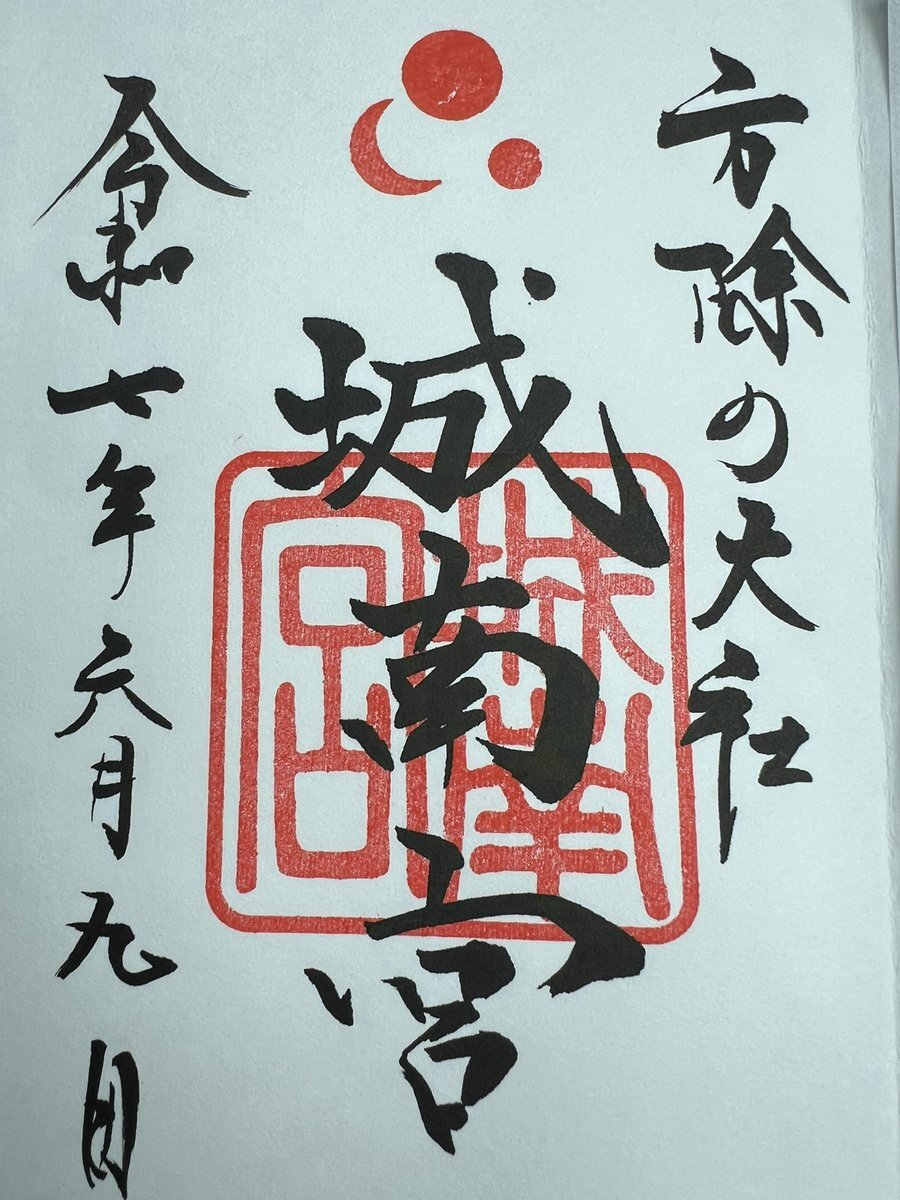 方除の大社
城南宮
城南宮
令和七年六月九日